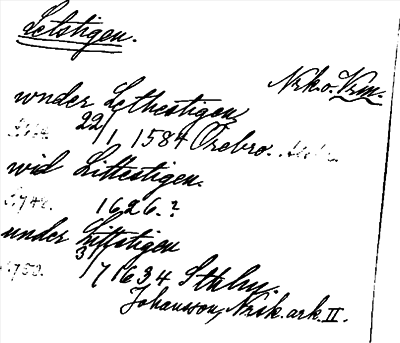 Letstigen.
Nrk o. Vrm.
wnder Lethestigen
22/1 1584 Örebro.
wid Littestigen.
1626.?
under Littstigen
3/7 1634 Sthlm.
Johansson, Nrsk. ark. II.